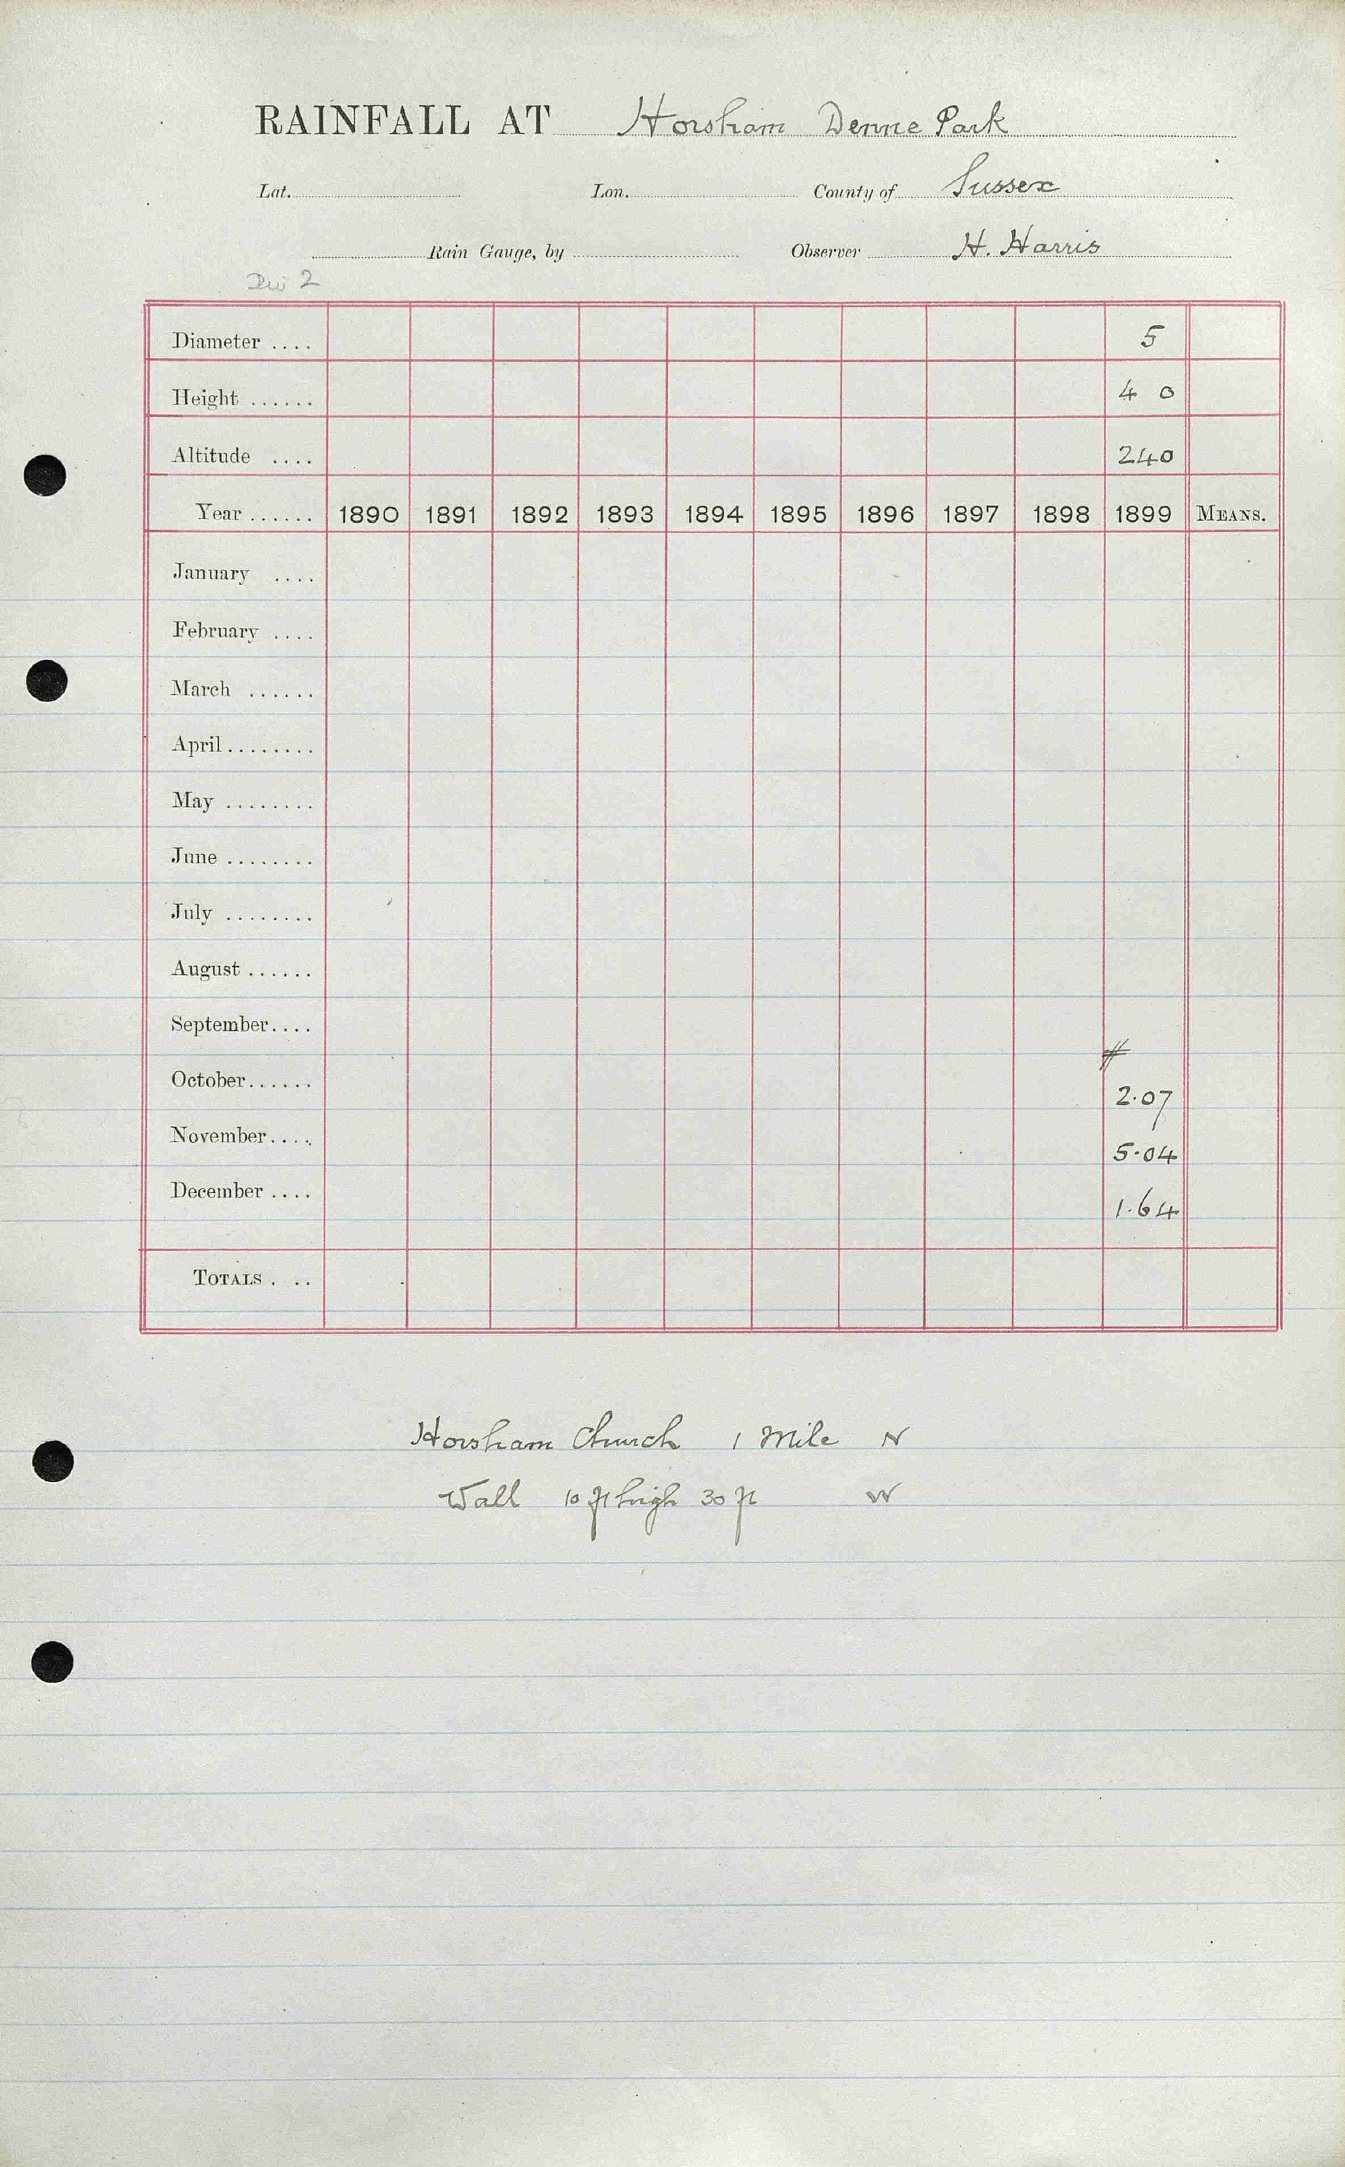 RAINFALL AT Horsham Denne Park
Lat. Lon. County of Sussex
Rain Gauge, by Observer H. Harris
Div 2
Diameter .... 5
Height ...... 4 0
Altitude .... 240
Year ...... 1890 1891 1892 1893 1894 1895 1896 1897 1898 1899 MEANS.
January ....
February ....
March ......
April ........
May ........
June ........
July ........
August ......
September ....
#
October ...... 2.07
November .... 5.04
December .... 1.64
TOTALS . ..
Horsham Church 1 Mile N
Wall 10 ft high 30 ft W